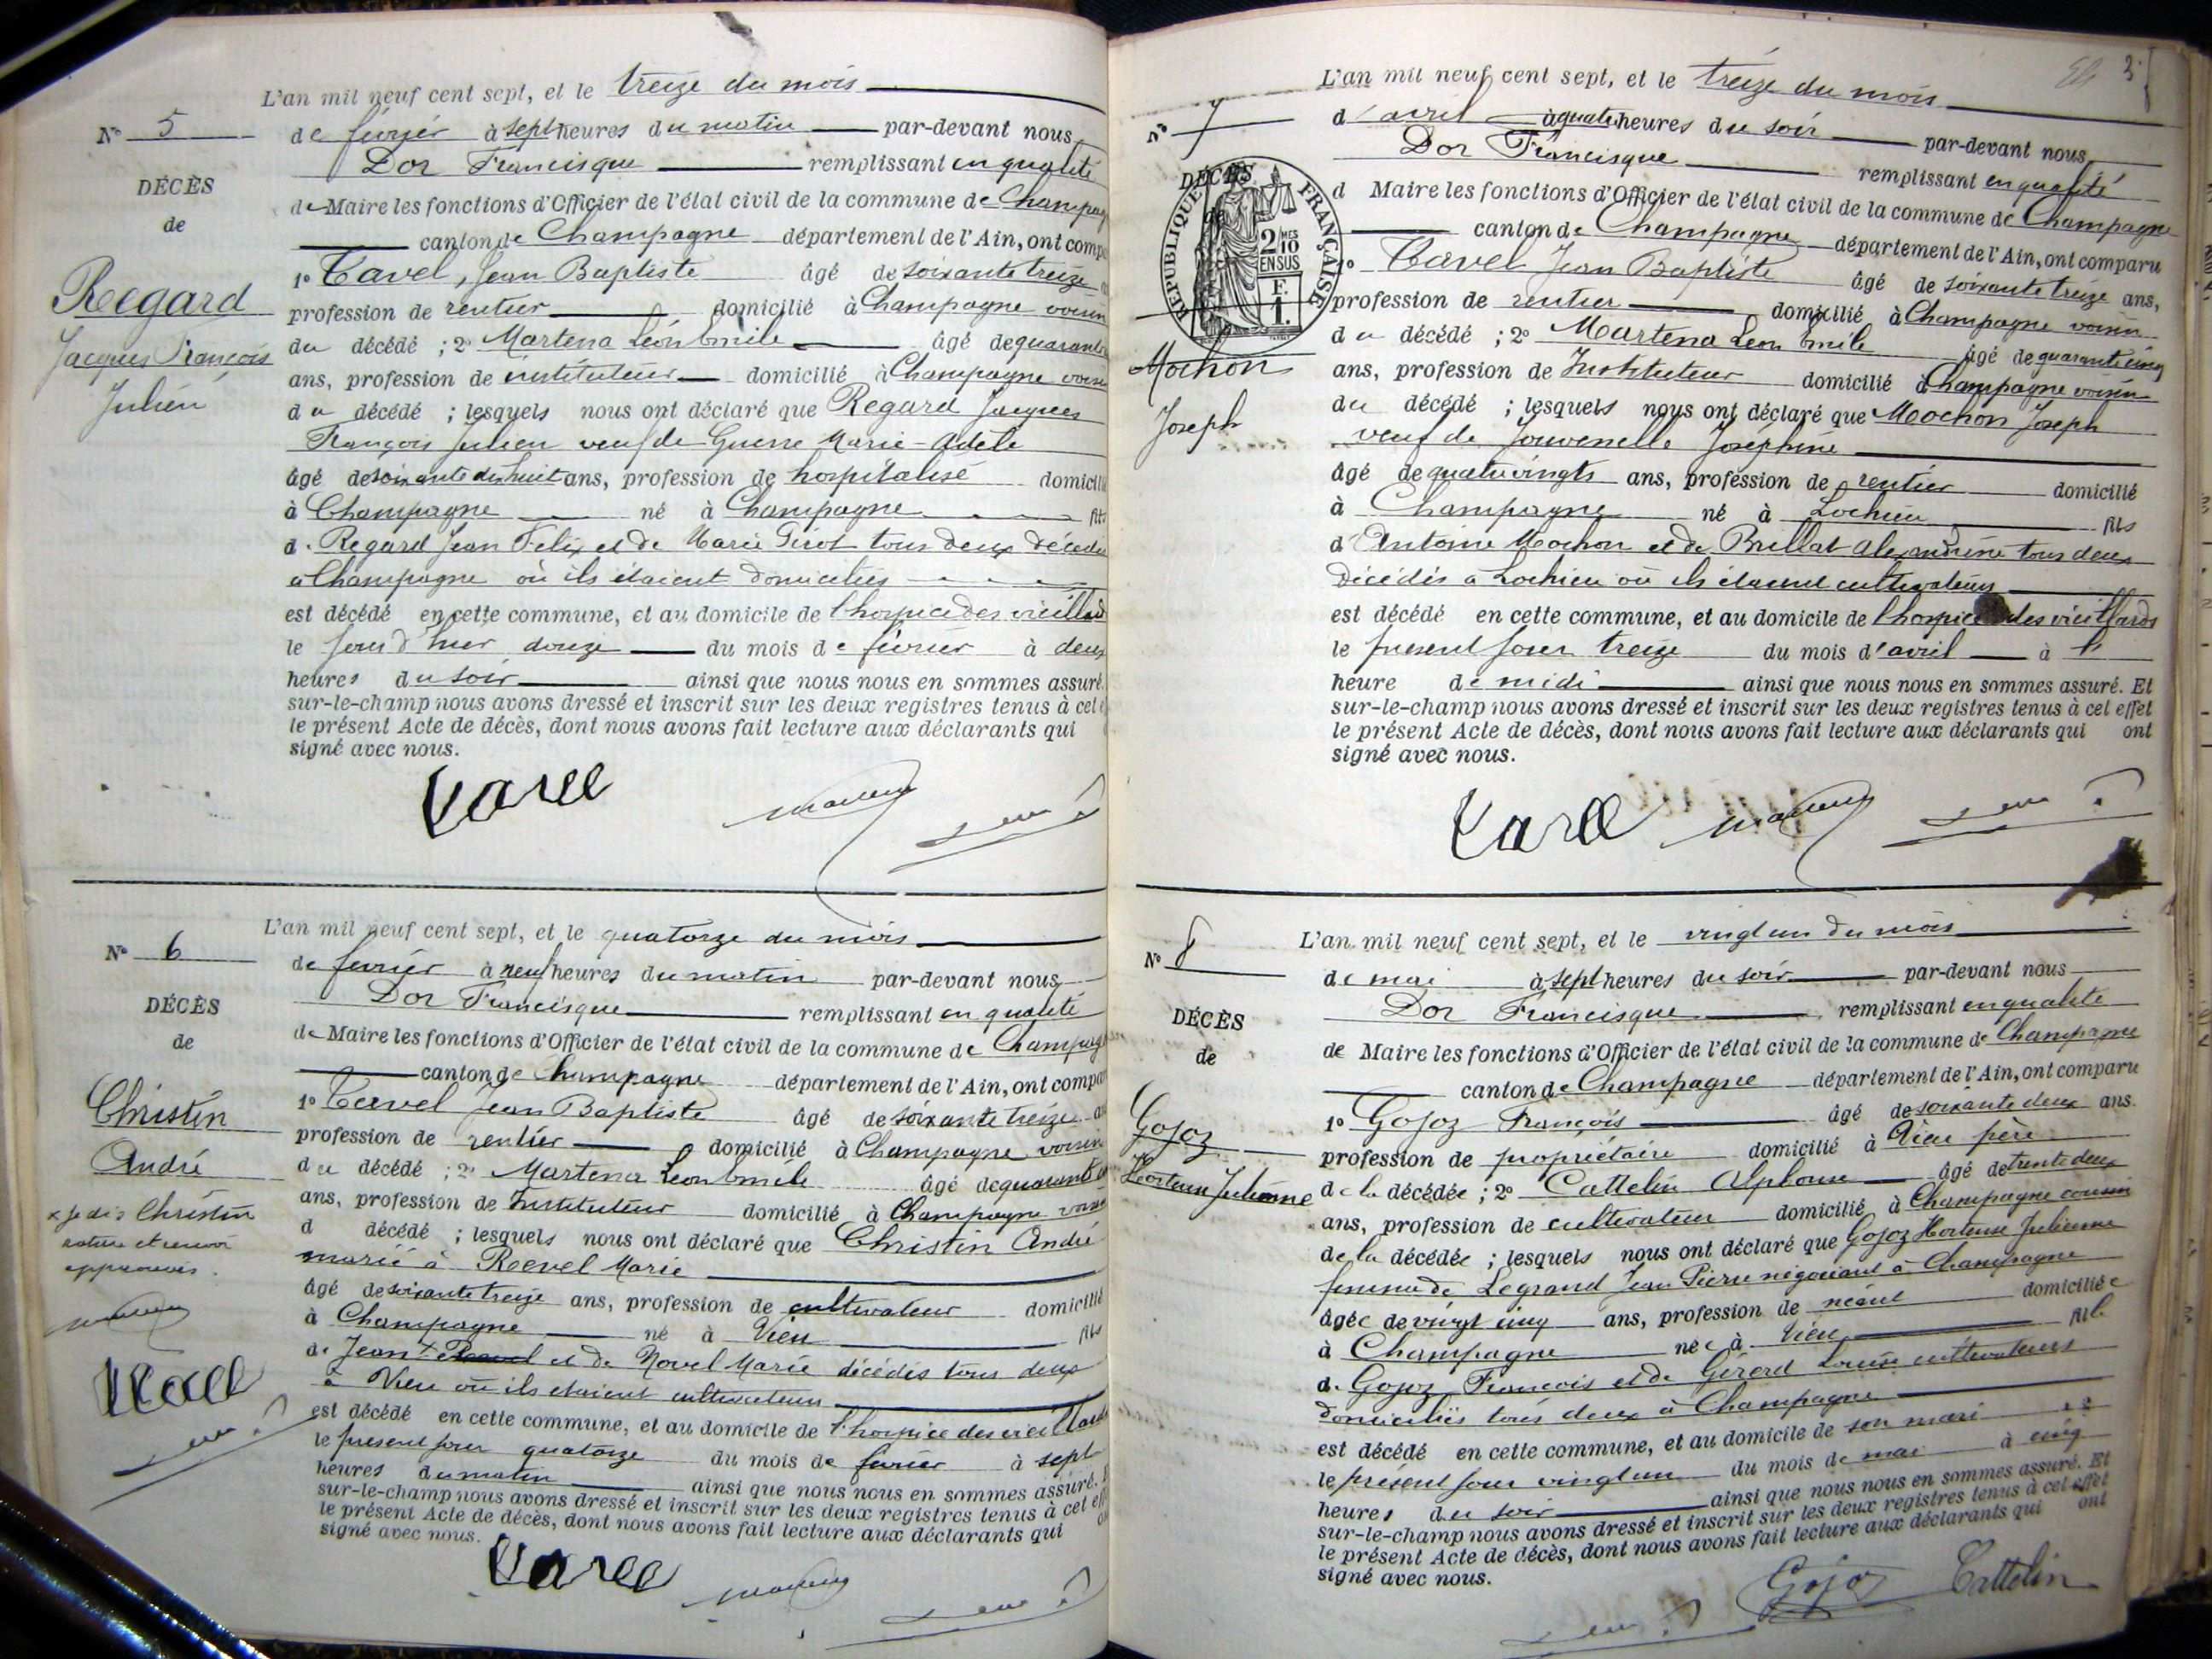 L'an mil neuf cent sept, et le treize du mois
N° 5
de février à sept heures du matin par-devant nous
Dor Francisque remplissant en qualité
DÉCÈS
de Maire les fonctions d'Officier de l'état civil de la commune de Champag
de
canton de Champagne département de l'Ain, ont comp
1° Tavel, Jean Baptiste âgé de soixante treize
Regard
profession de rentier domicilié à Champagne voisin
Jacques François
du décédé ; 2° Martena Léon Emile âgé de quarante
ans, profession de instituteur domicilié à Champagne voisin
Julien
du décédé ; lesquels nous ont déclaré que Regard Jacques
François Julien veuf de Guerre Marie-Adèle
âgé de soixante dix huit ans, profession de hospitalisé domicilié
à Champagne né à Champagne fils
d. Regard Jean Felix et de Marie Girot tous deux décédés
à Champagne où ils étaient domiciliés
est décédé en cette commune, et au domicile de l'hospice des vieillards
le jour d'hier douze du mois de février à deux
heures du soir ainsi que nous nous en sommes assuré.
sur-le-champ nous avons dressé et inscrit sur les deux registres tenus à cet e
le présent Acte de décès, dont nous avons fait lecture aux déclarants qui
signé avec nous.
Tavel
L'an mil neuf cent sept, et le quatorze du mois
N° 6
de février à neuf heures du matin par-devant nous
Dor Francisque remplissant en qualité
DÉCÈS
de Maire les fonctions d'Officier de l'état civil de la commune de Champag
de
canton de Champagne département de l'Ain, ont compar
1° Tavel Jean Baptiste âgé de soixante treize a
Christin
profession de rentier domicilié à Champagne voisin
André
du décédé ; 2° Martena Léon Emile âgé de quarante
ans, profession de Instituteur domicilié à Champagne voisin
x je dis Christin
rature et renvoi
approuvés.
d décédé ; lesquels nous ont déclaré que Christin André
marié à Revel Marie
âgé de soixante treize ans, profession de cultivateur domicilié
à Champagne né à Vieu fils
de Jean x et de Novel Marie décédés tous deux
à Vieu où ils étaient cultivateurs
est décédé en cette commune, et au domicile de l'hospice des vieillards
le présent jour quatorze du mois de février à sept
heures du matin ainsi que nous nous en sommes assuré. E
sur-le-champ nous avons dressé et inscrit sur les deux registres tenus à cet eff
le présent Acte de décès, dont nous avons fait lecture aux déclarants qui
signé avec nous.
Tavel
Tavel
3
L'an mil neuf cent sept, et le treize du mois
N° 7
d'avril à quatre heures du soir par-devant nous
Dor Francisque remplissant en qualité
DÉCÈS
de
RÉPUBLIQUE FRANÇAISE
2 MES
10
EN SUS
F.
1.
d Maire les fonctions d'Officier de l'état civil de la commune de Champagne
canton de Champagne département de l'Ain, ont comparu
1° Tavel Jean Baptiste âgé de soixante treize ans,
profession de rentier domicilié à Champagne voisin
Mochon
du décédé ; 2° Martena Léon Emile âgé de quarante cinq
ans, profession de Instituteur domicilié à Champagne voisin
Joseph
du décédé ; lesquels nous ont déclaré que Mochon Joseph
veuf de Jouvenelle Josephine
âgé de quatre vingts ans, profession de rentier domicilié
à Champagne né à Lochieu fils
d'Antoine Mochon et de Brillat Alexandrine tous deux
décédés à Lochieu où ils étaient cultivateurs
est décédé en cette commune, et au domicile de l'hospice des vieillards
le présent jour treize du mois d'avril à l'
heure de midi ainsi que nous nous en sommes assuré. Et
sur-le-champ nous avons dressé et inscrit sur les deux registres tenus à cet effet
le présent Acte de décès, dont nous avons fait lecture aux déclarants qui ont
signé avec nous.
Tavel
L'an mil neuf cent sept, et le vingt un du mois
N° 8
de mai à sept heures du soir par-devant nous
Dor Francisque remplissant en qualité
DÉCÈS
de Maire les fonctions d'Officier de l'état civil de la commune de Champagne
de
canton de Champagne département de l'Ain, ont comparu
1° Gojoz François âgé de soixante deux ans.
Gojoz
profession de propriétaire domicilié à Vieu père
Hortense Julienne
de la décédée ; 2° Cattelin Alphonse âgé de trente deux
ans, profession de cultivateur domicilié à Champagne cousin
de la décédée ; lesquels nous ont déclaré que Gojoz Hortense Julienne
femme de Legrand Jean Pierre négociant à Champagne
âgée de vingt cinq ans, profession de néant domiciliée
à Champagne née à Vieu fille
d. Gojoz François et de Gérard Louise cultivateurs
domiciliés tous deux à Champagne
est décédé en cette commune, et au domicile de son mari
le présent jour vingt un du mois de mai à cinq
heures du soir ainsi que nous nous en sommes assuré. Et
sur-le-champ nous avons dressé et inscrit sur les deux registres tenus à cet effet
le présent Acte de décès, dont nous avons fait lecture aux déclarants qui ont
signé avec nous.
Gojoz Cattelin